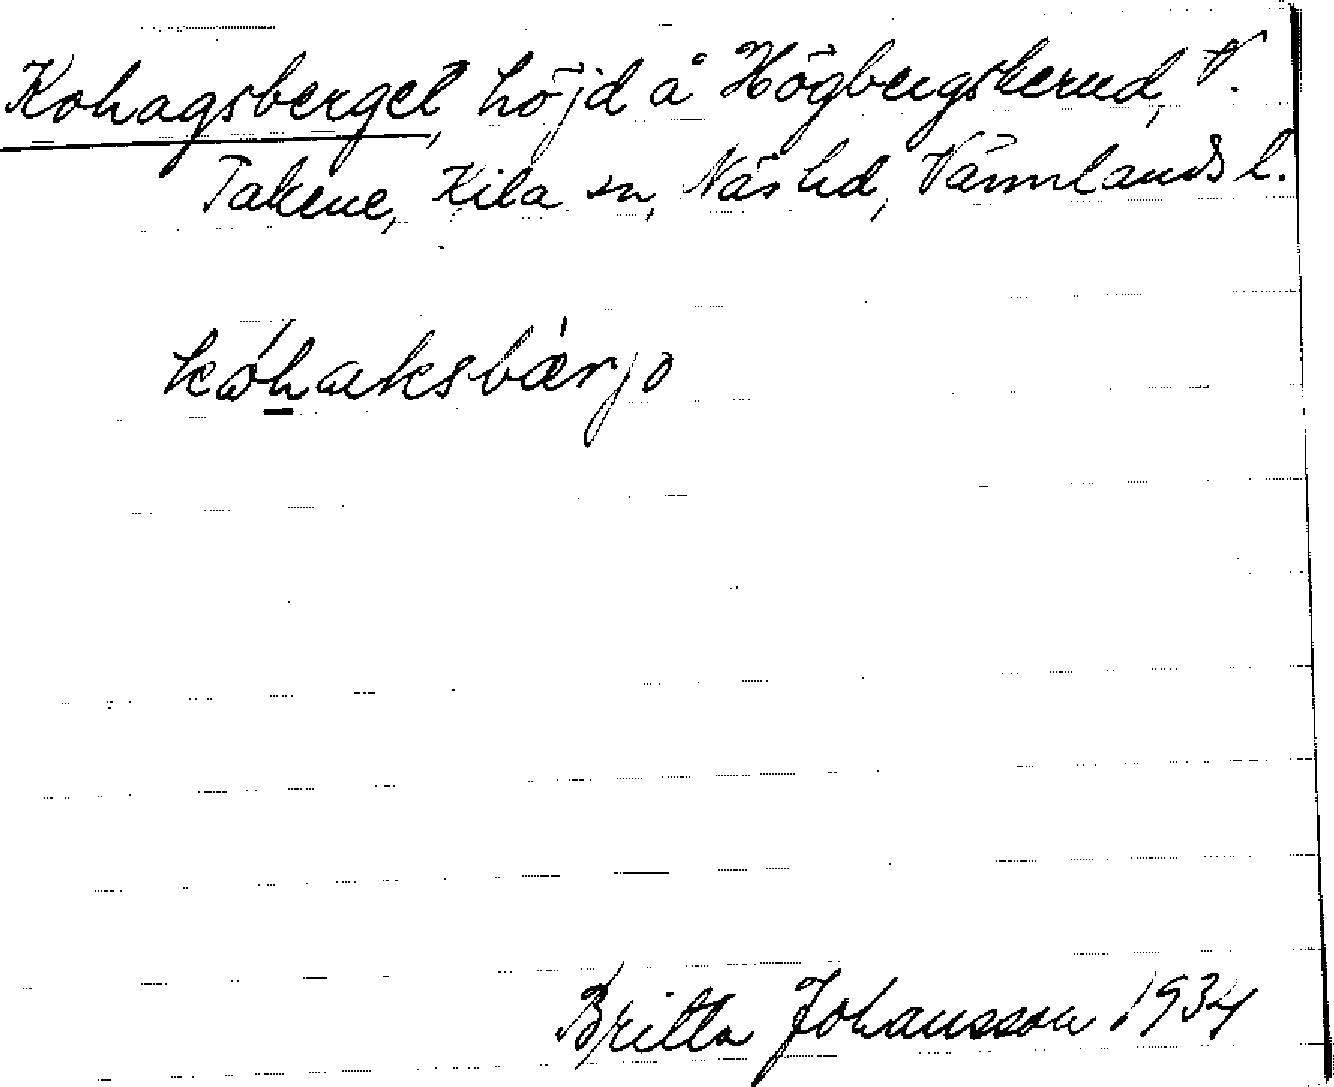 Kohagsberget, höjd å Högbergskerud, V.
Takene, Kila sn, Näs hd, Värmlands l.
kóhaksbærjo
Britta Johansson 1934